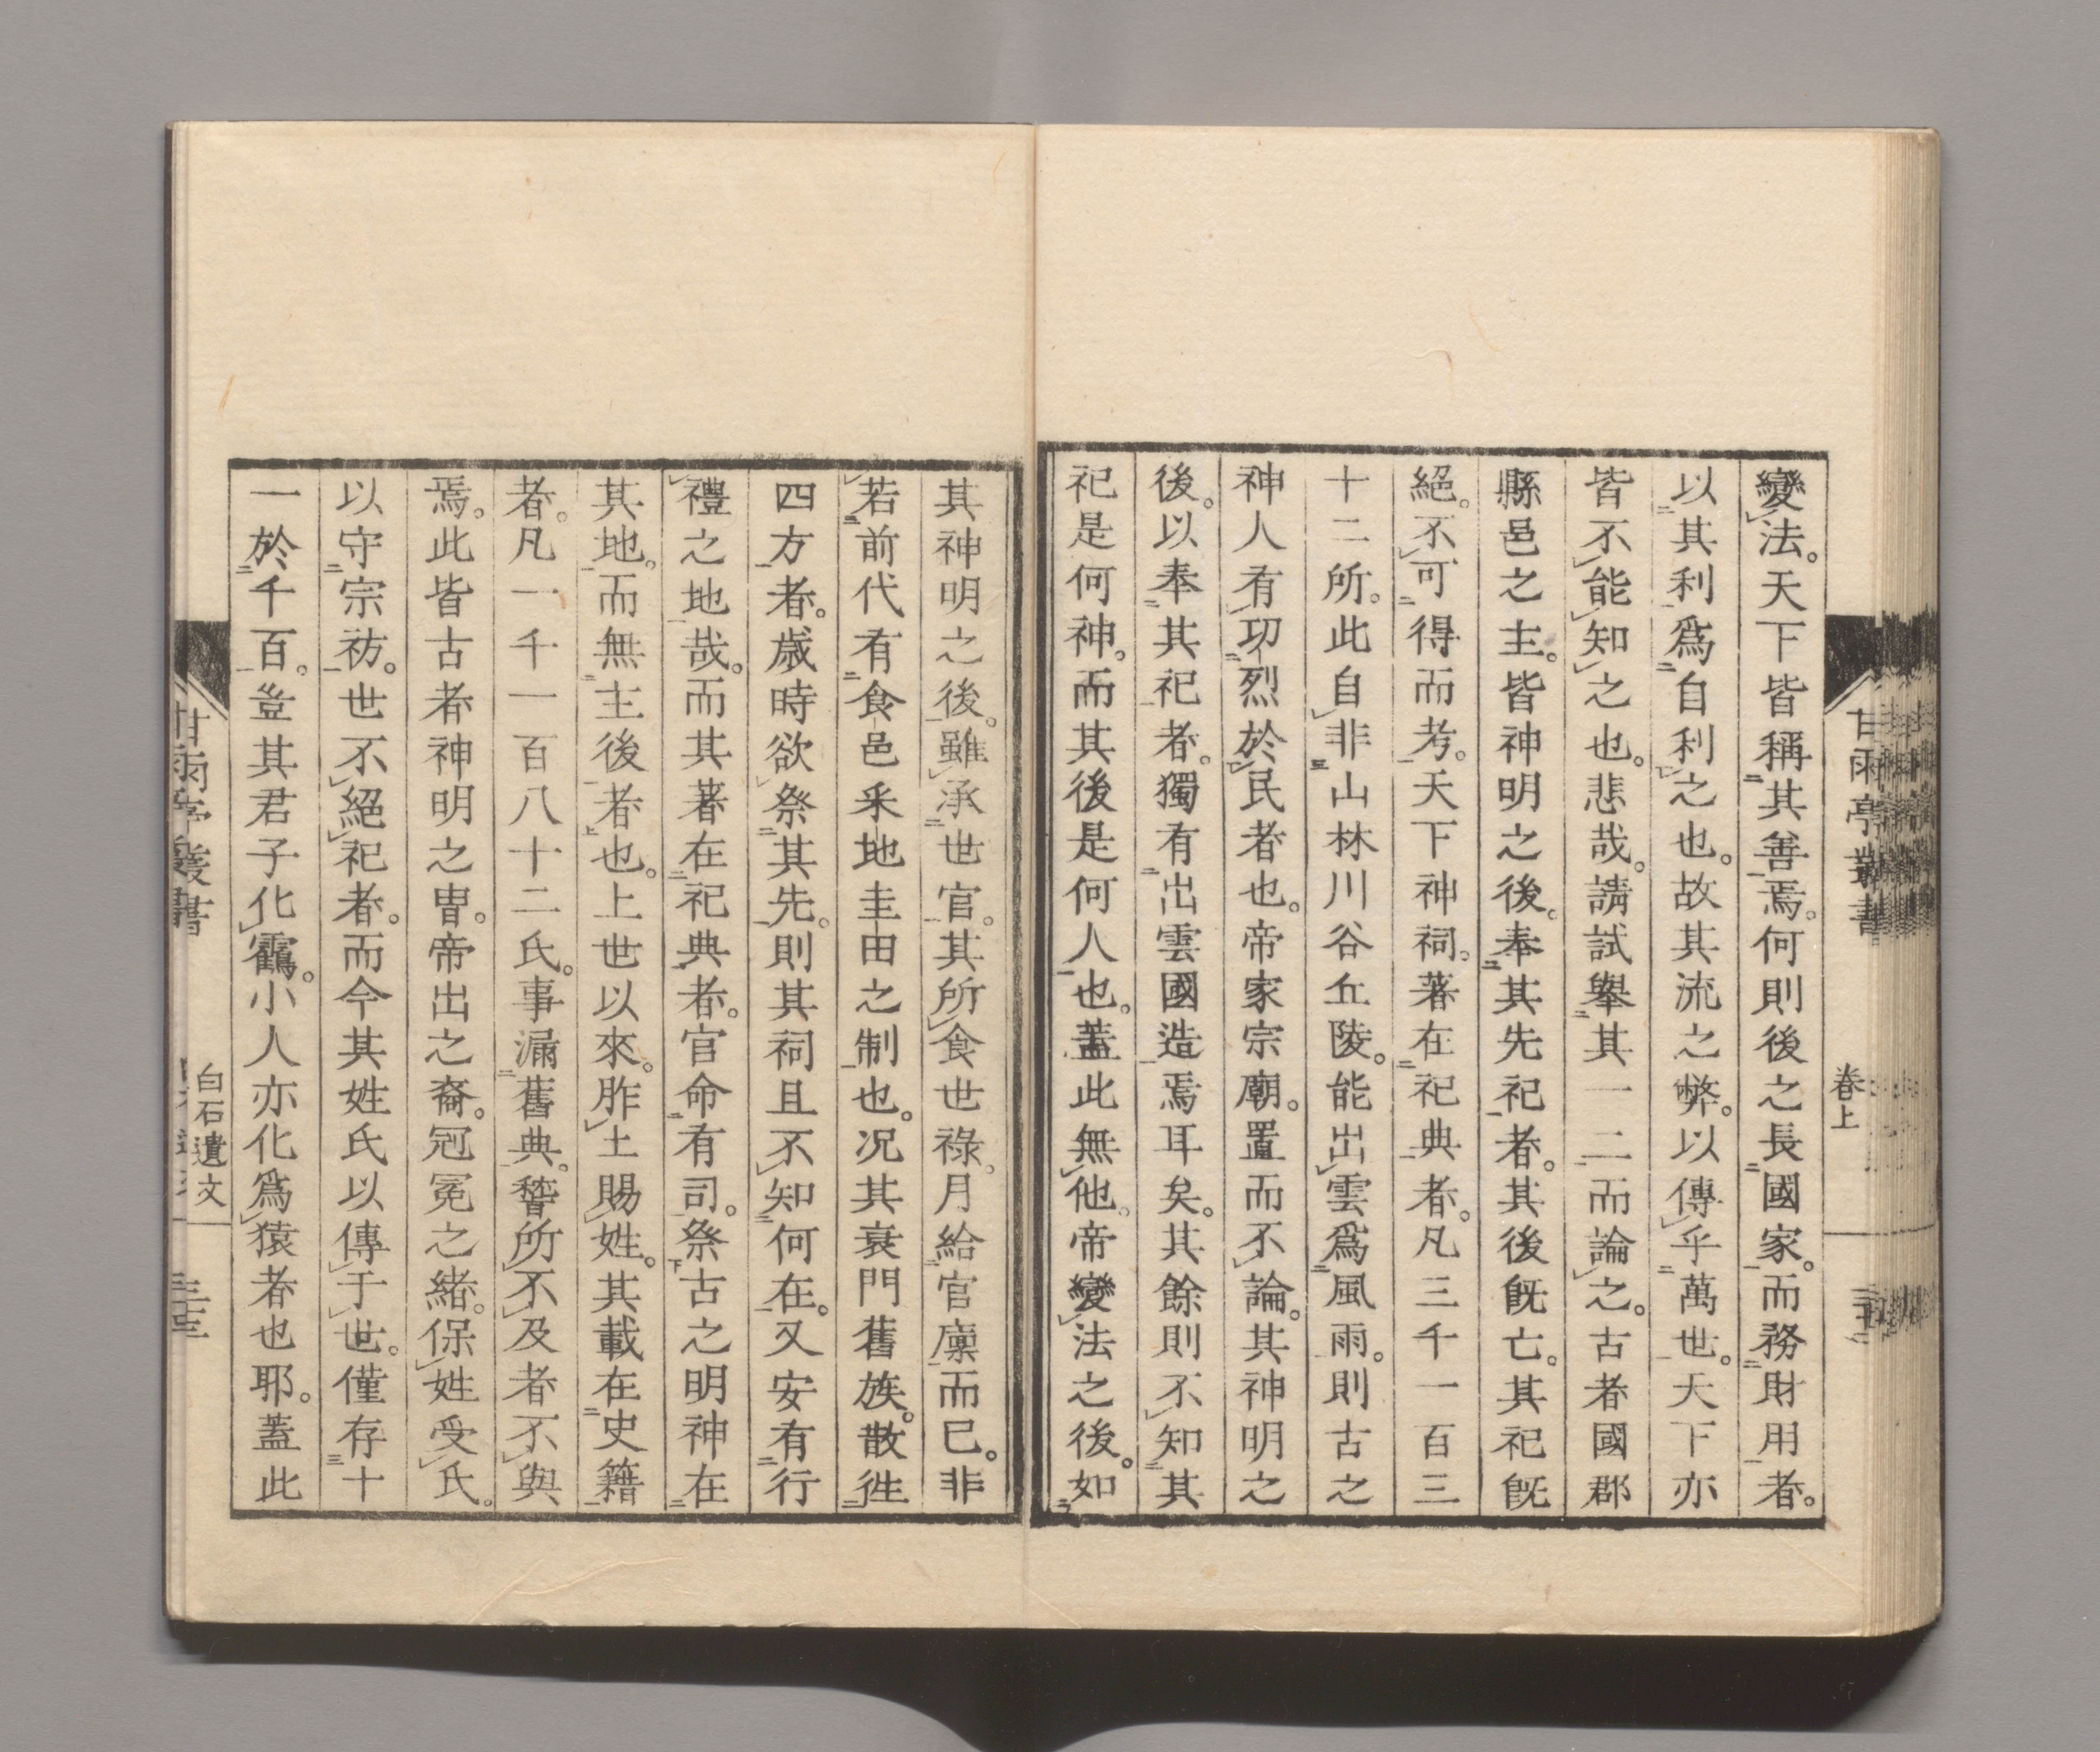 變法。天下皆稱其善焉。何則後之長國家。而務財用者。
以其利爲自利之也。故其流之弊。以傳乎萬世。天下亦
皆不能知之也。悲哉。請試擧其一二而論之。古者國郡
縣邑之主。皆神明之後。奉其先祀者。其後旣亡。其祀旣
絕。不可得而考。天下神祠。著在祀典者。凡三千一百三
十二所。此自非山林川谷丘陵。能出雲爲風雨。則古之
神人有功烈於民者也。帝家宗廟。置而不論。其神明之
後。以奉其祀者。獨有出雲國造焉耳矣。其餘則不知其
祀是何神。而其後是何人也。蓋此無他。帝變法之後。如
其神明之後。雖承世官。其所食世祿。月給官廩而已。非
若前代有食邑采地圭田之制也。况其衰門舊族。散徃
四方者。歲時欲祭其先。則其祠且不知何在。又安有行
禮之地哉。而其著在祀典者。官命有司。祭古之明神在
其地。而無主後者也。上世以來。胙土賜姓。其載在史籍
者。凡一千一百八十二氏。事漏舊典。䇿所不及者不與
焉。此皆古者神明之冑。帝出之裔。冠冕之緒。保姓受氏。
以守宗祊。世不絕祀者。而今其姓氏以傳于世。僅存十
一於千百。豈其君子化鶴。小人亦化爲猿者也耶。蓋此
甘雨亭叢書
卷上
甘雨亭叢書
白石遺文